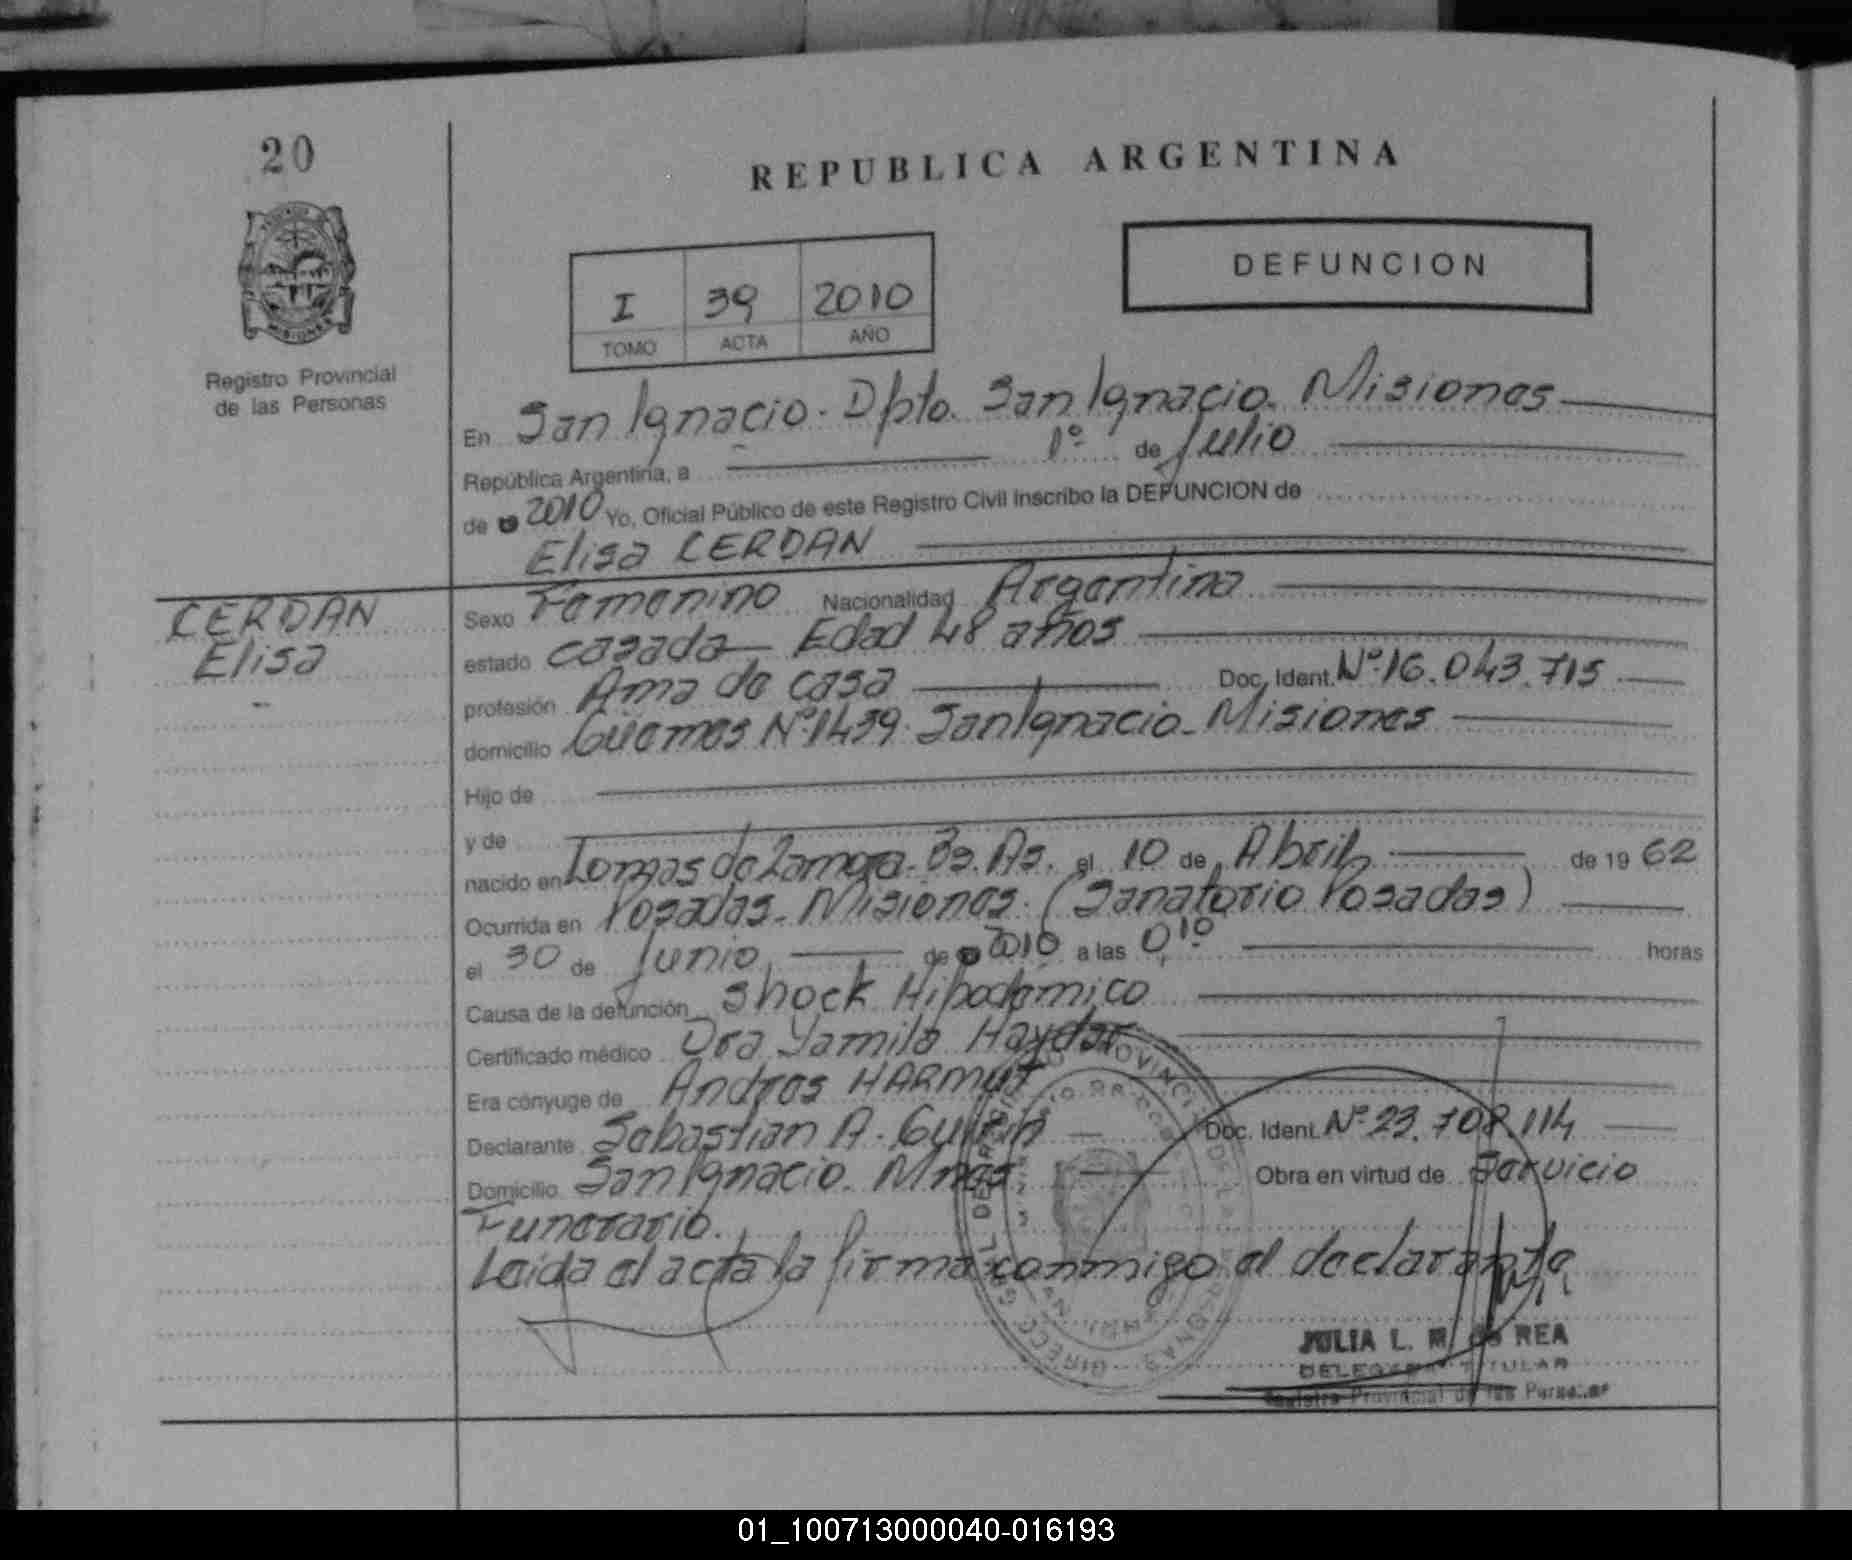 20
REPUBLICA ARGENTINA
DEFUNCION
I 39 2010
TOMO ACTA AÑO
MISIONES
Registro Provincial
de las Personas
En San Ignacio. Dpto. San Ignacio. Misiones
República Argentina, a 1º de Julio
de 2010 Yo, Oficial Público de este Registro Civil inscribo la DEFUNCION de
Elisa CERDAN
CERDAN
Elisa
Sexo Femenino Nacionalidad Argentina
estado casada Edad 48 años
profesión Ama de casa Doc. Ident. Nº 16.043.715
domicilio Güemes Nº 1439. San Ignacio. Misiones
Hijo de
y de
nacido en Lomas de Zamora. Bs. As. el 10 de Abril de 19 62
Ocurrida en Posadas. Misiones. (Sanatorio Posadas)
el 30 de Junio de 2010 a las 0,10 horas
Causa de la defunción Shock
Certificado médico Dra Yamila Haydar
Era cónyuge de Andres HARMUT
Declarante Sebastian A. Doc. Ident. Nº 23.708.114
Domicilio San Ignacio. Mnes. Obra en virtud de Servicio
Funerario.
Leida el acta la firma conmigo el declarante
JULIA L. M. de REA
DELEGADA TITULAR
Registro Provincial de las Personas
01_100713000040-016193